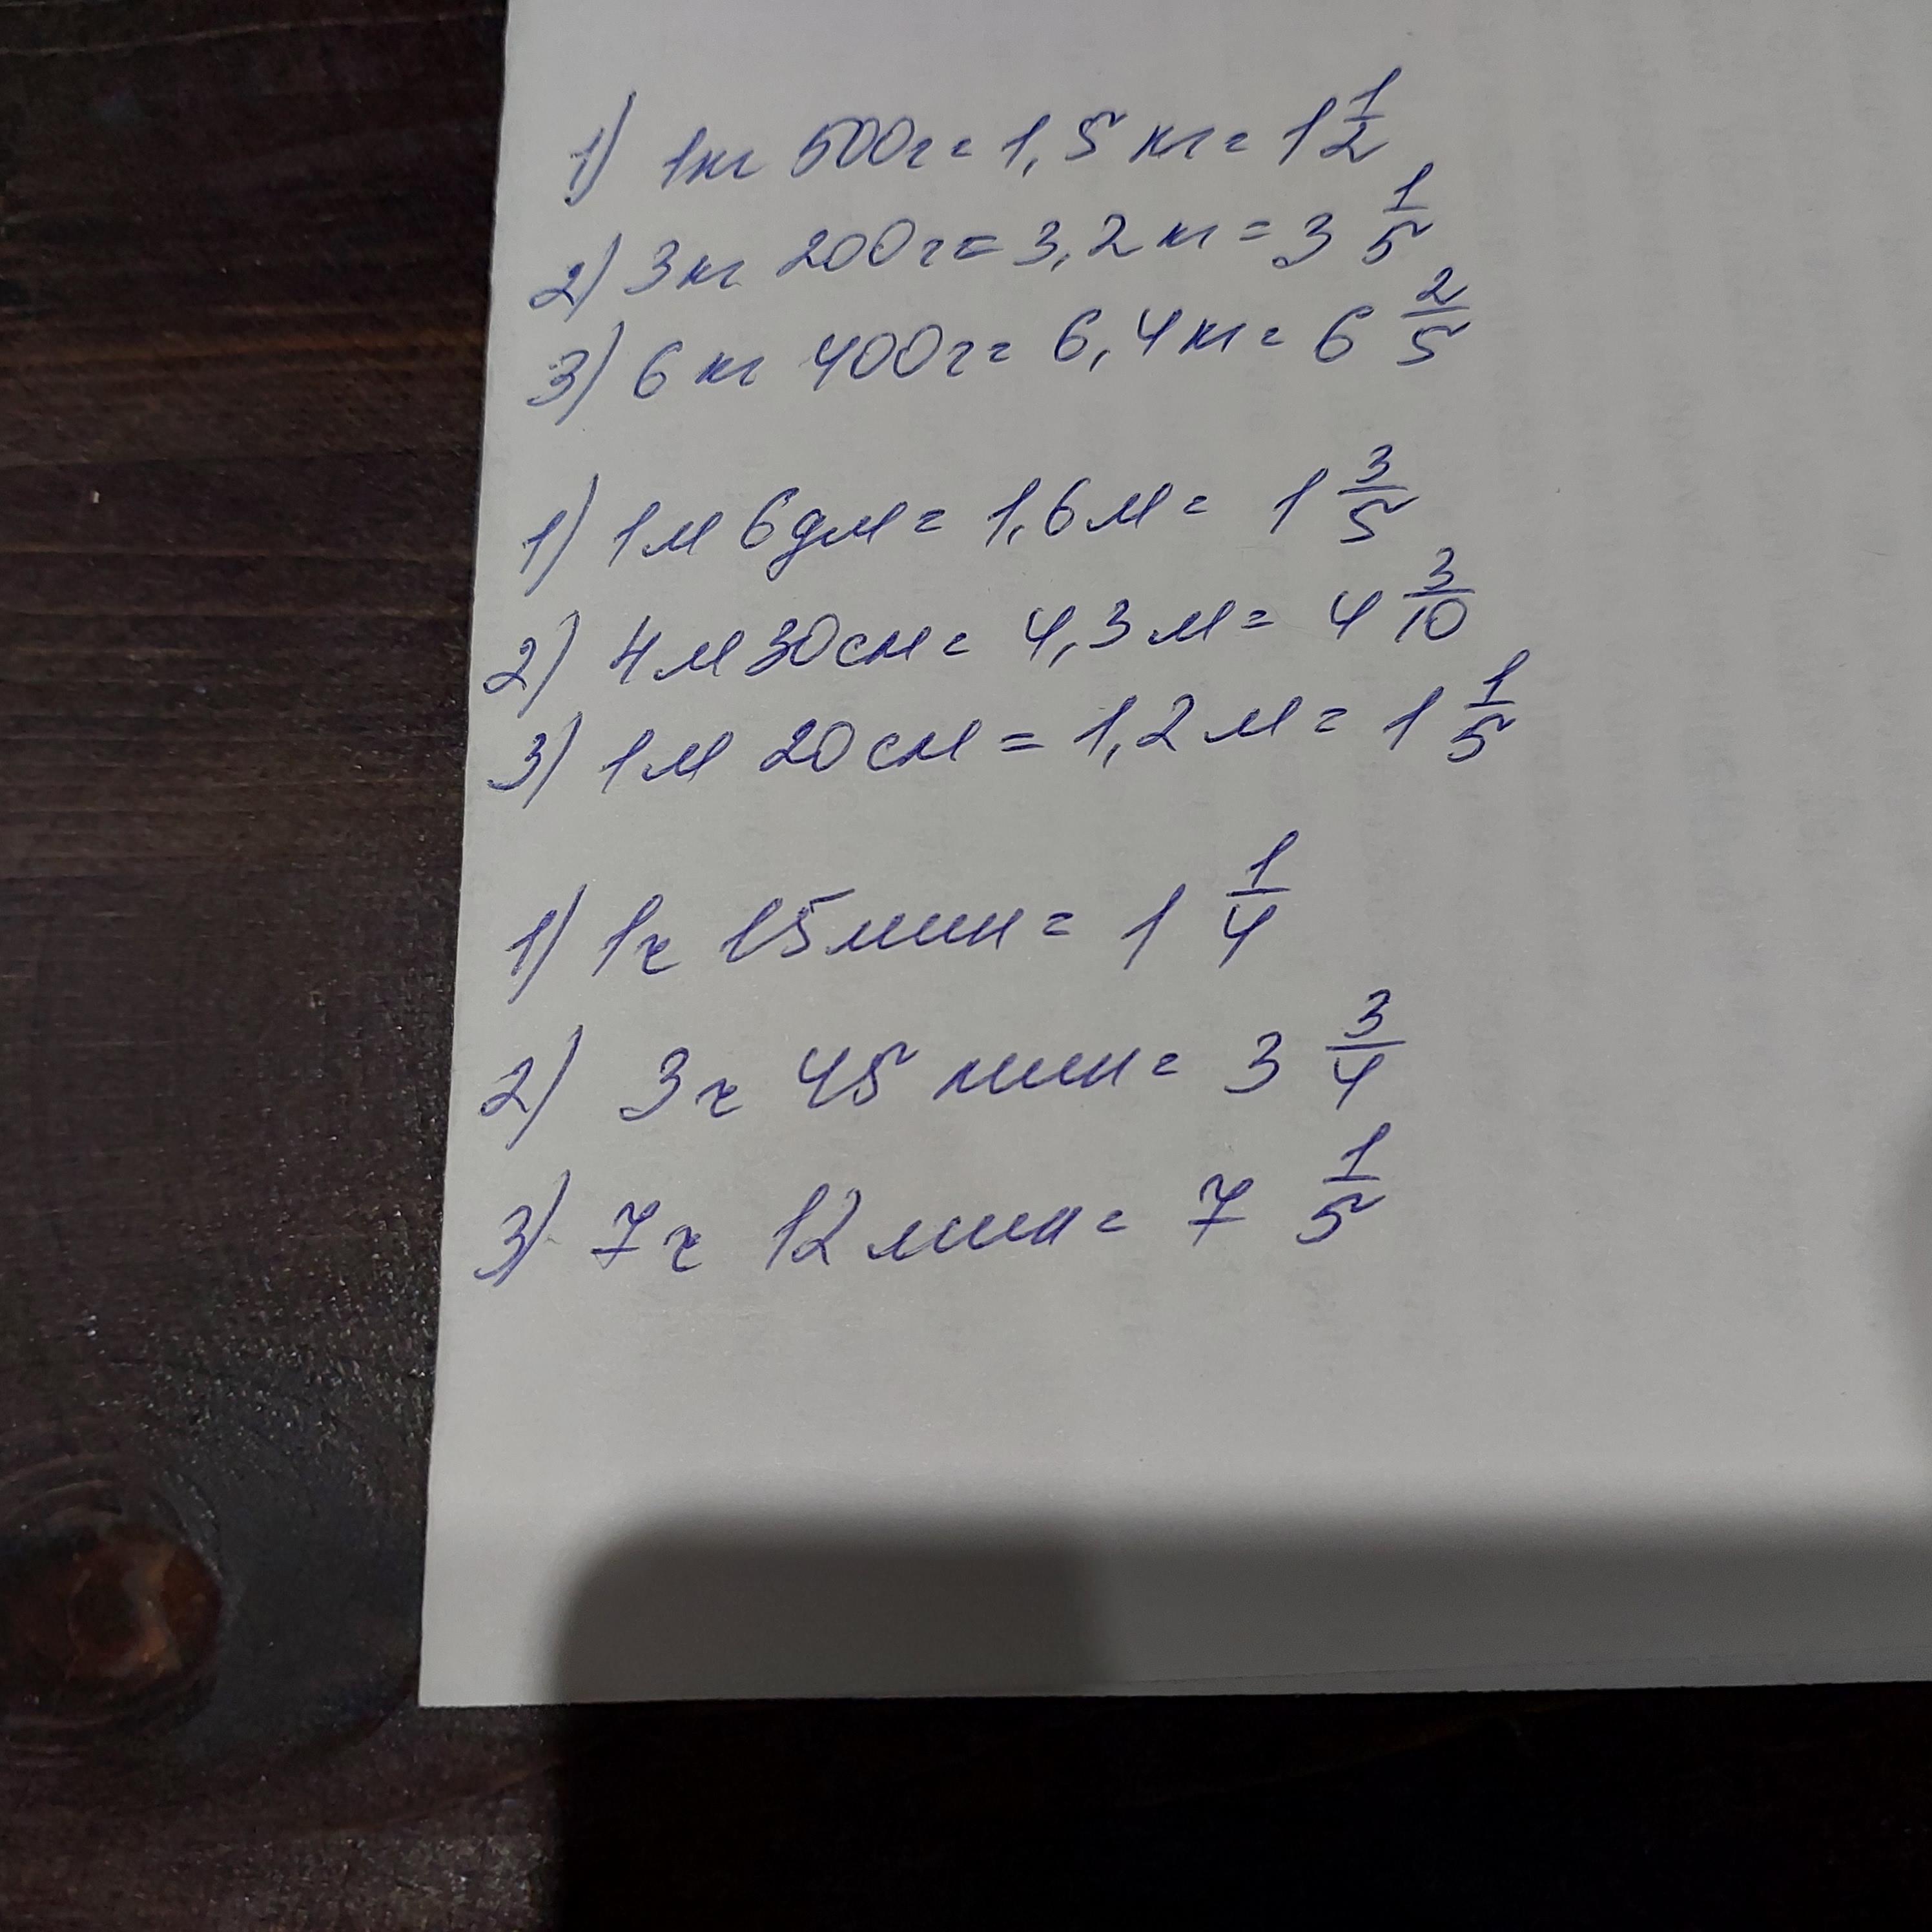 1) 1кг 500г = 1,5 кг = 1 1/2
2) 3кг 200г = 3,2 кг = 3 1/5
3) 6 кг 400г = 6,4 кг = 6 2/5
1) 1м 6дм = 1,6м = 1 3/5
2) 4м 30см = 4,3м = 4 3/10
3) 1м 20см = 1,2м = 1 1/5
1) 1ч 15мин = 1 1/4
2) 3ч 45 мин = 3 3/4
3) 7ч 12мин = 7 1/5